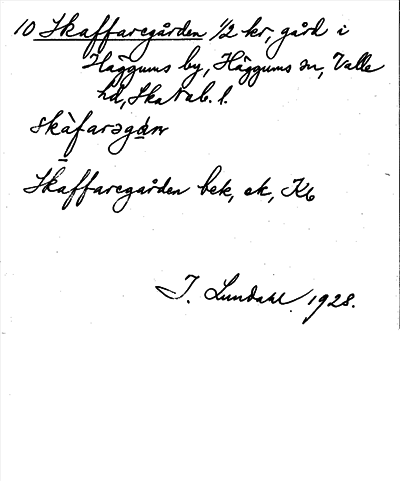 10 Skaffaregården 1/2 kr, gård i
Häggums by, Häggums sn, Valle
hd, Skarab. l.
skàfaregán
Skaffaregården bek, ek, K6
I. Lundahl 1928.